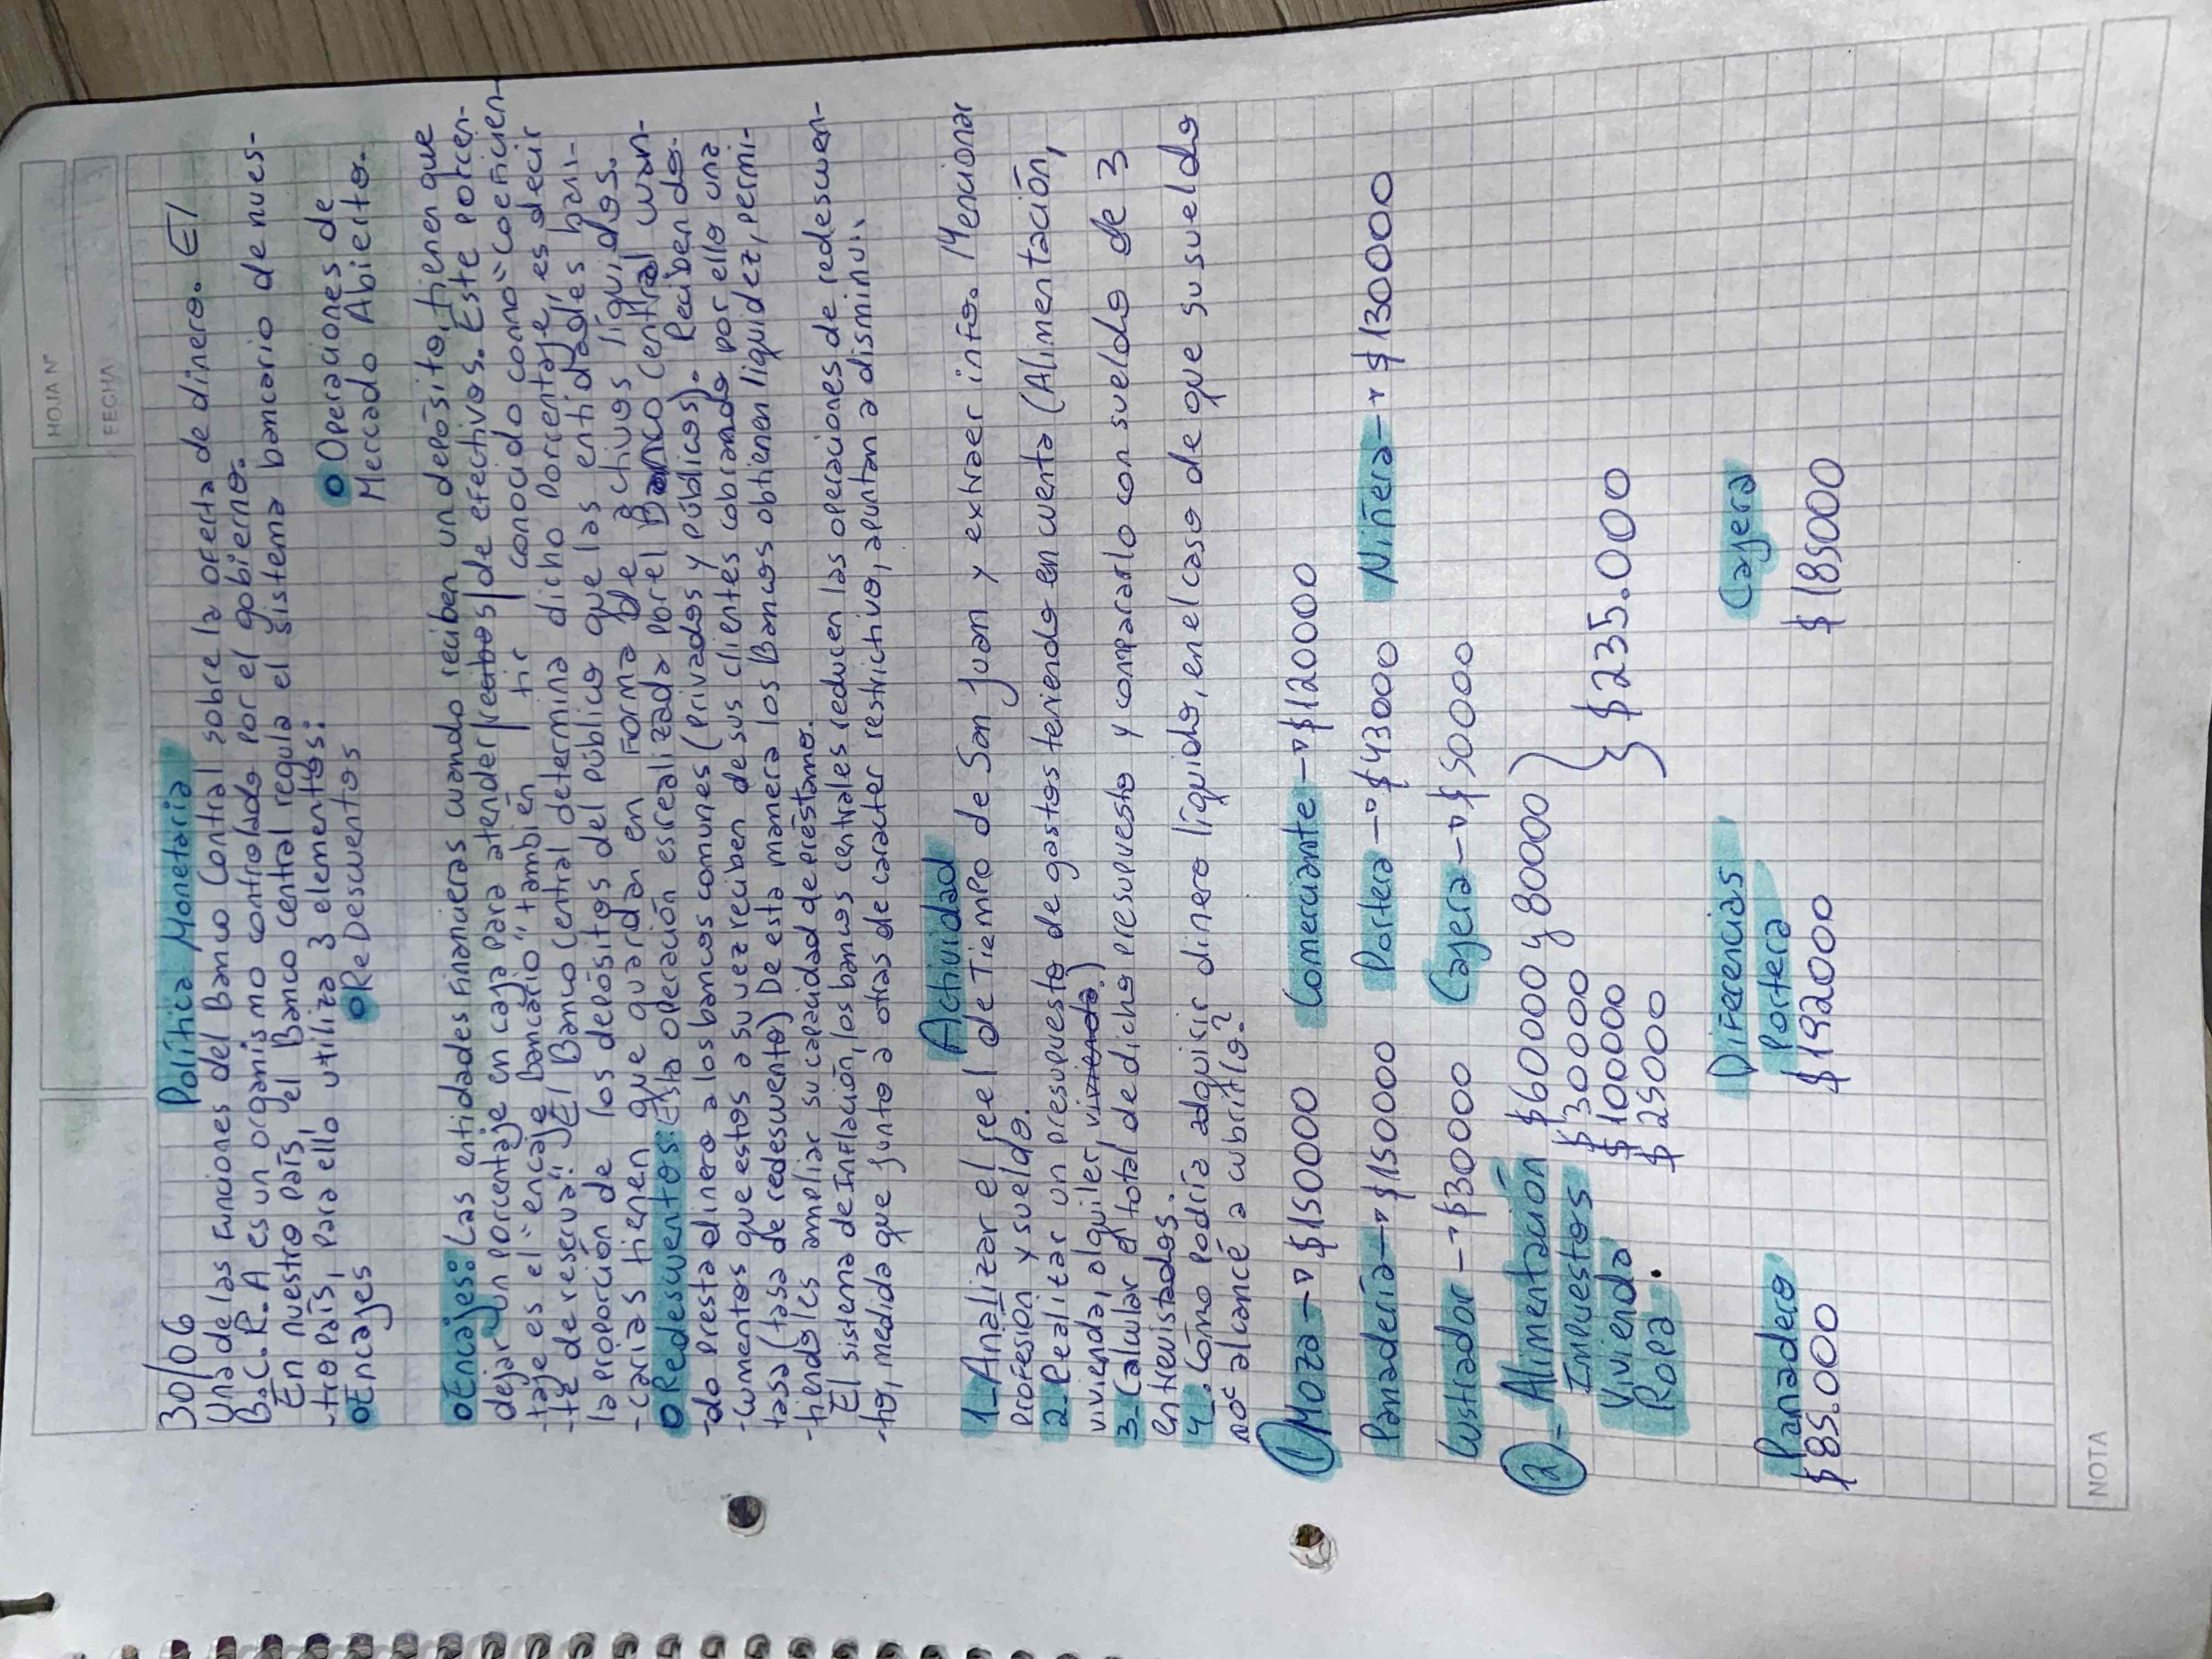 HOJA N°
FECHA
30/06
Política Monetaria
Una de las Funciones del Banco Contral sobre la oferta de dinero. El
B.C.R.A es un organismo controlado por el gobierno.
En nuestro país, el Banco central regula el sistema bancario de nues-
-tro país, para ello utiliza 3 elementos:
Encajes
ReDescuentos
Operaciones de
Mercado Abierto.
Encajes: Las entidades Financieras cuando reciben un depósito, tienen que
dejar un porcentaje en caja para atender de efectivos. Este porcen-
-taje es el "encaje bancario" también conocido como "coeficien-
-te de reserva". El Banco Central determina dicho porcentaje, es decir
la proporción de los depósitos del público que las entidades ban-
-carias tienen que guardar en forma de activos líquidos.
Redescuentos: Esta operación es realizada por el Banco Central cuan-
-do presta dinero a los bancos comunes (privados y públicos). Reciben do-
-cumentos que estos a su vez reciben de sus clientes cobrando por ello una
tasa (tasa de redescuento) De esta manera los Bancos obtienen liquidez, permi-
-tiendoles ampliar su capacidad de préstamo.
El sistema de Inflación, los bancos centrales reducen las operaciones de redescuen-
-to, medida que junto a otras de carácter restrictivo, apuntan a disminuir
Actividad
1_ Analizar el reel de Tiempo de San Juan y extraer info. Mencionar
profesión y sueldo.
2_ Realizar un presupuesto de gastos teniendo en cuenta (Alimentación,
vivienda, alquiler, vivienda)
3_ Calcular el total de dicho presupuesto y compararlo con sueldo de 3
entrevistados.
4_. Cómo podría adquirir dinero líquido, en el caso de que su sueldo
no alcance a cubrirlo?
1 Moza → $150000
Comerciante → $120000
Panadería → $150000
Portera → $43000
Niñera → $130000
Lustrador → $30000
Cajera → $50000
2 - Alimentación $60000 y 80000
Impuestos $30000
Vivienda $100000
Ropa. $25000
$235.000
Diferencias
Panadero
$85.000
Portera
$192000
Cajera
$185000
NOTA